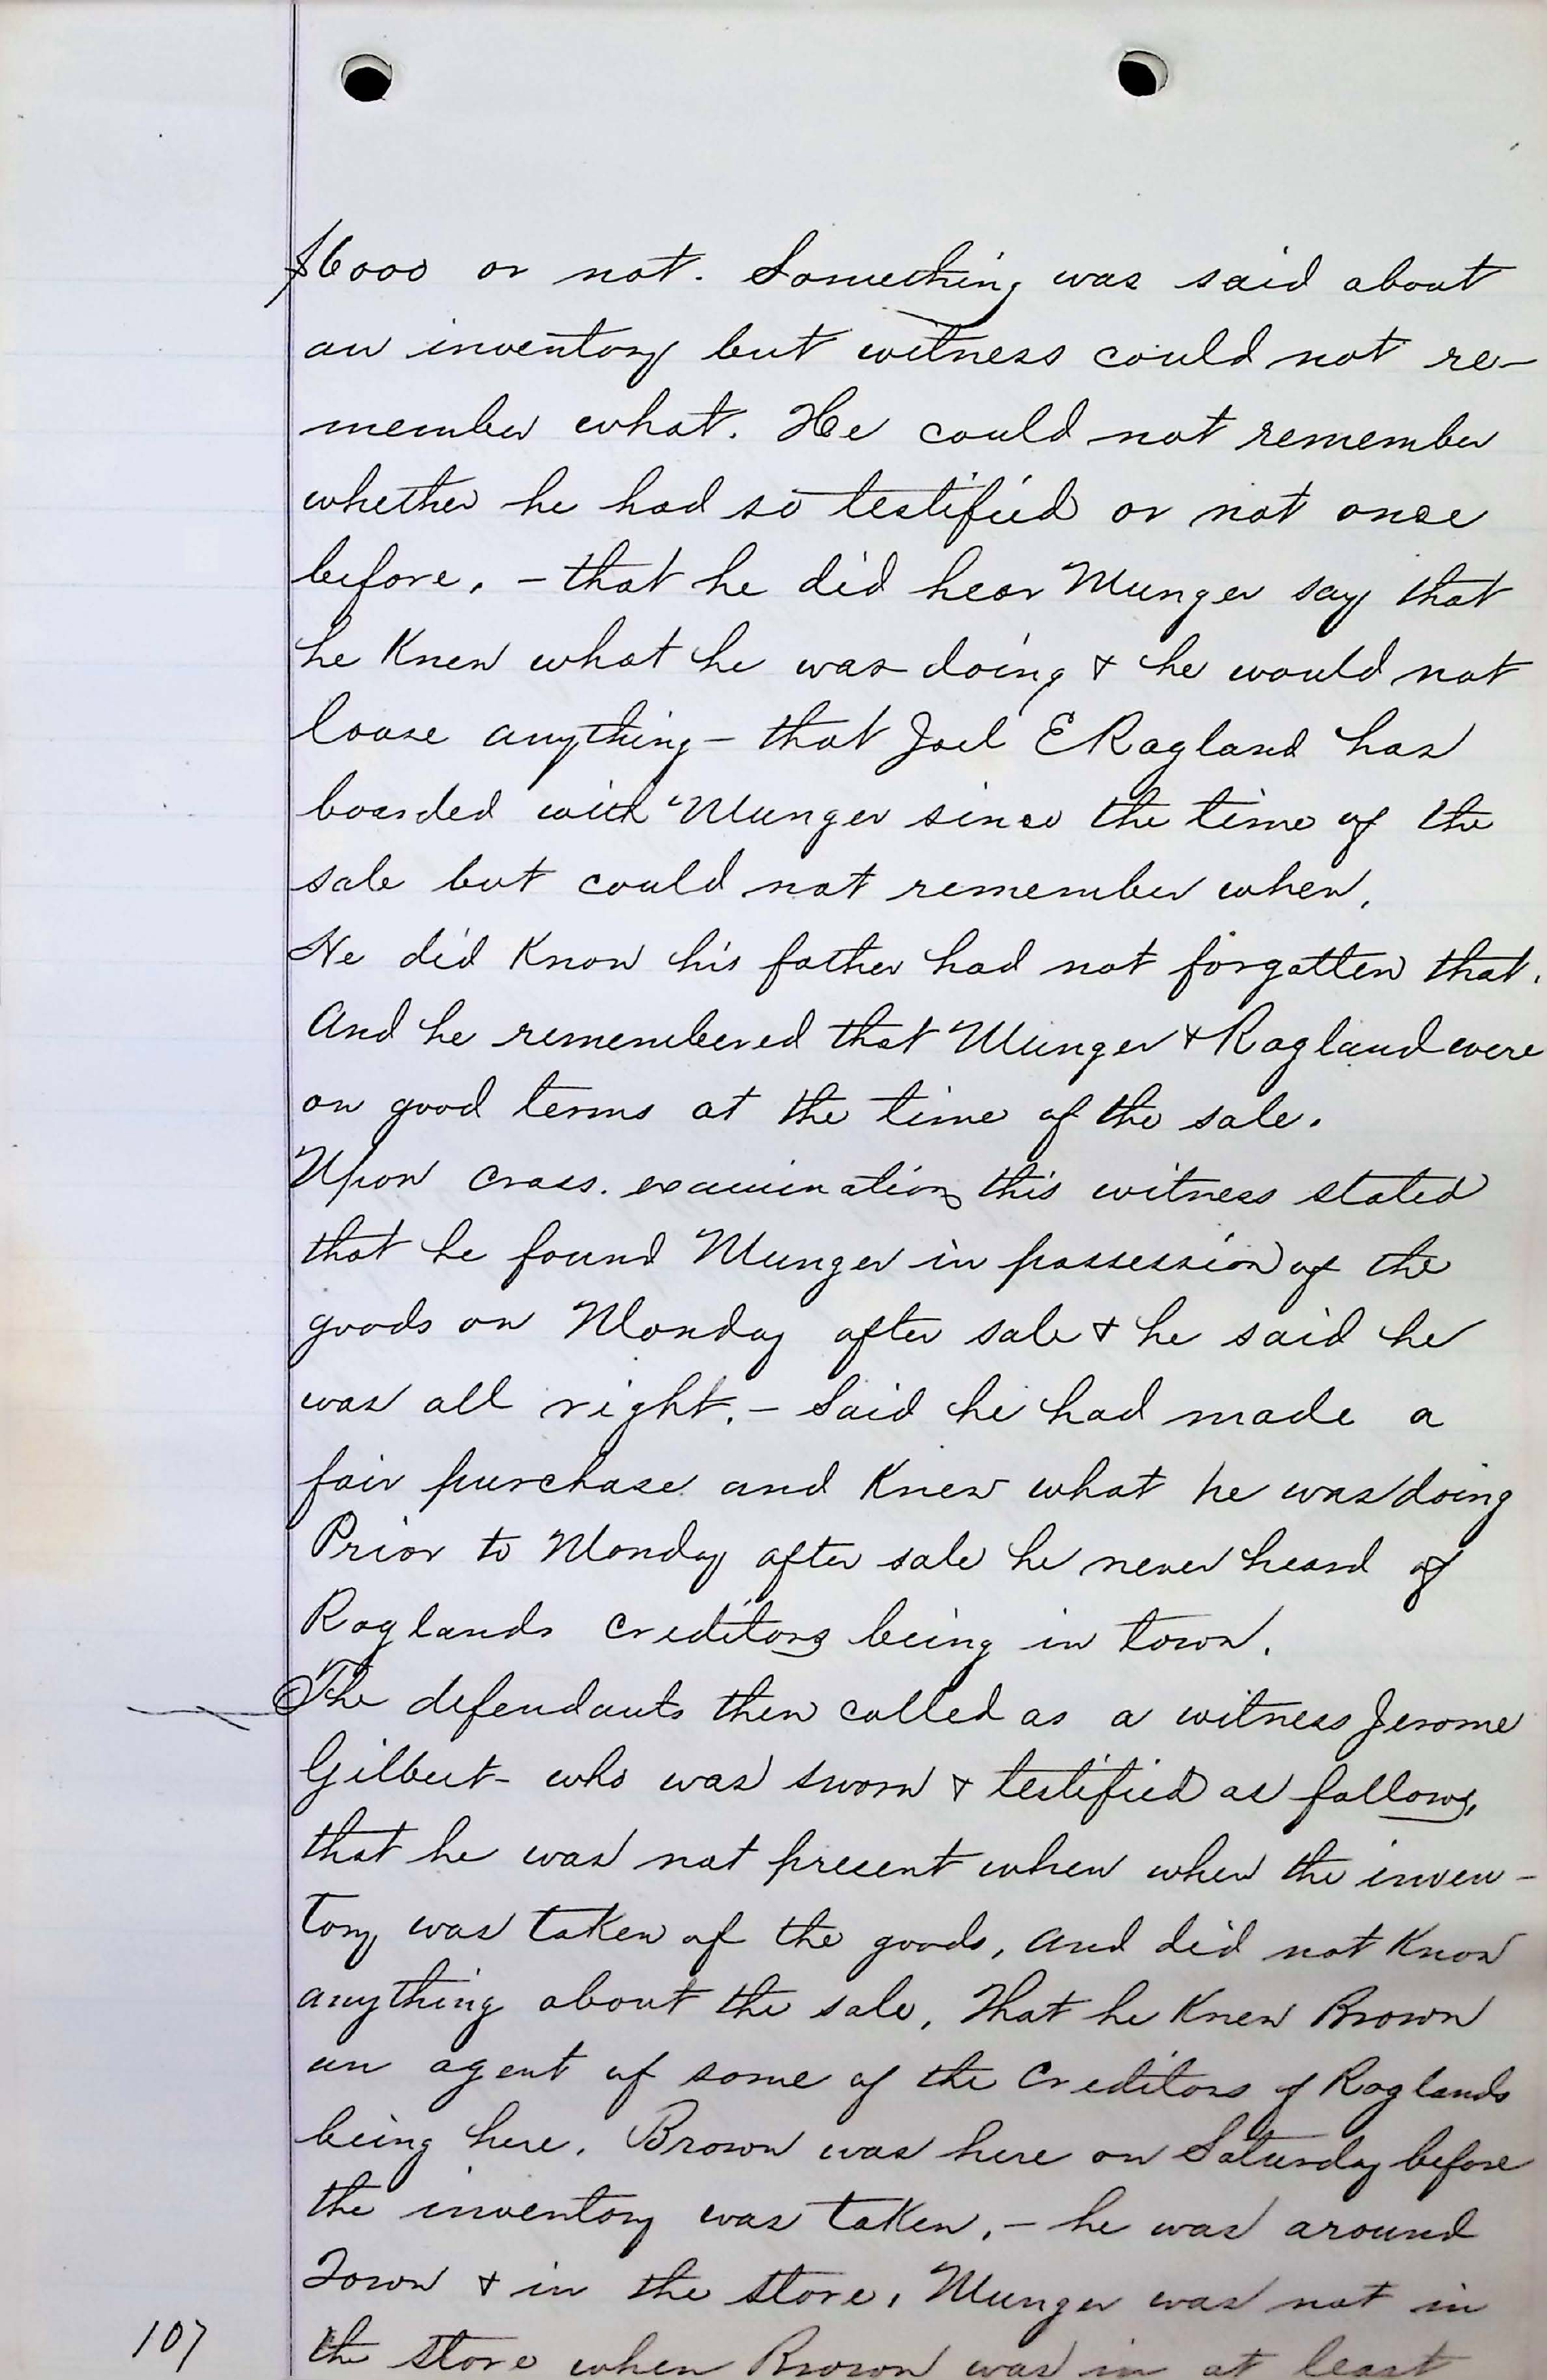 $6000 or not. Something was said about
an inventory but witness could not re-
member what. He could not remember
whether he had so testified or not once
before, - that he did hear Munger say that
he Knew what he was doing & he would not
loose anything - that Joel E Ragland has
boarded with Munger since the time of the
sale but could not remember when.
He did Know his father had not forgotten that.
And he remembered that Munger & Ragland were
on good terms at the time of the sale.
Upon cross. examination this witness stated
that he found Munger in possession of the
goods on Monday after sale & he said he
was all right. - Said he had made a
fair purchase and Knew what he was doing
Prior to Monday after sale he never heard of
Raglands Creditors being in town.
The defendants then called as a witness Jerome
Gilbert - who was sworn & testified as follows,
that he was not present when when the inven-
tory was taken of the goods, and did not Know
anything about the sale, That he Knew Brown
an agent of some of the Creditors of Raglands
being here. Brown was here on Saturday before
the inventory was taken, - he was around
Town & in the store, Munger was not in
107 the store when Brown was in at least